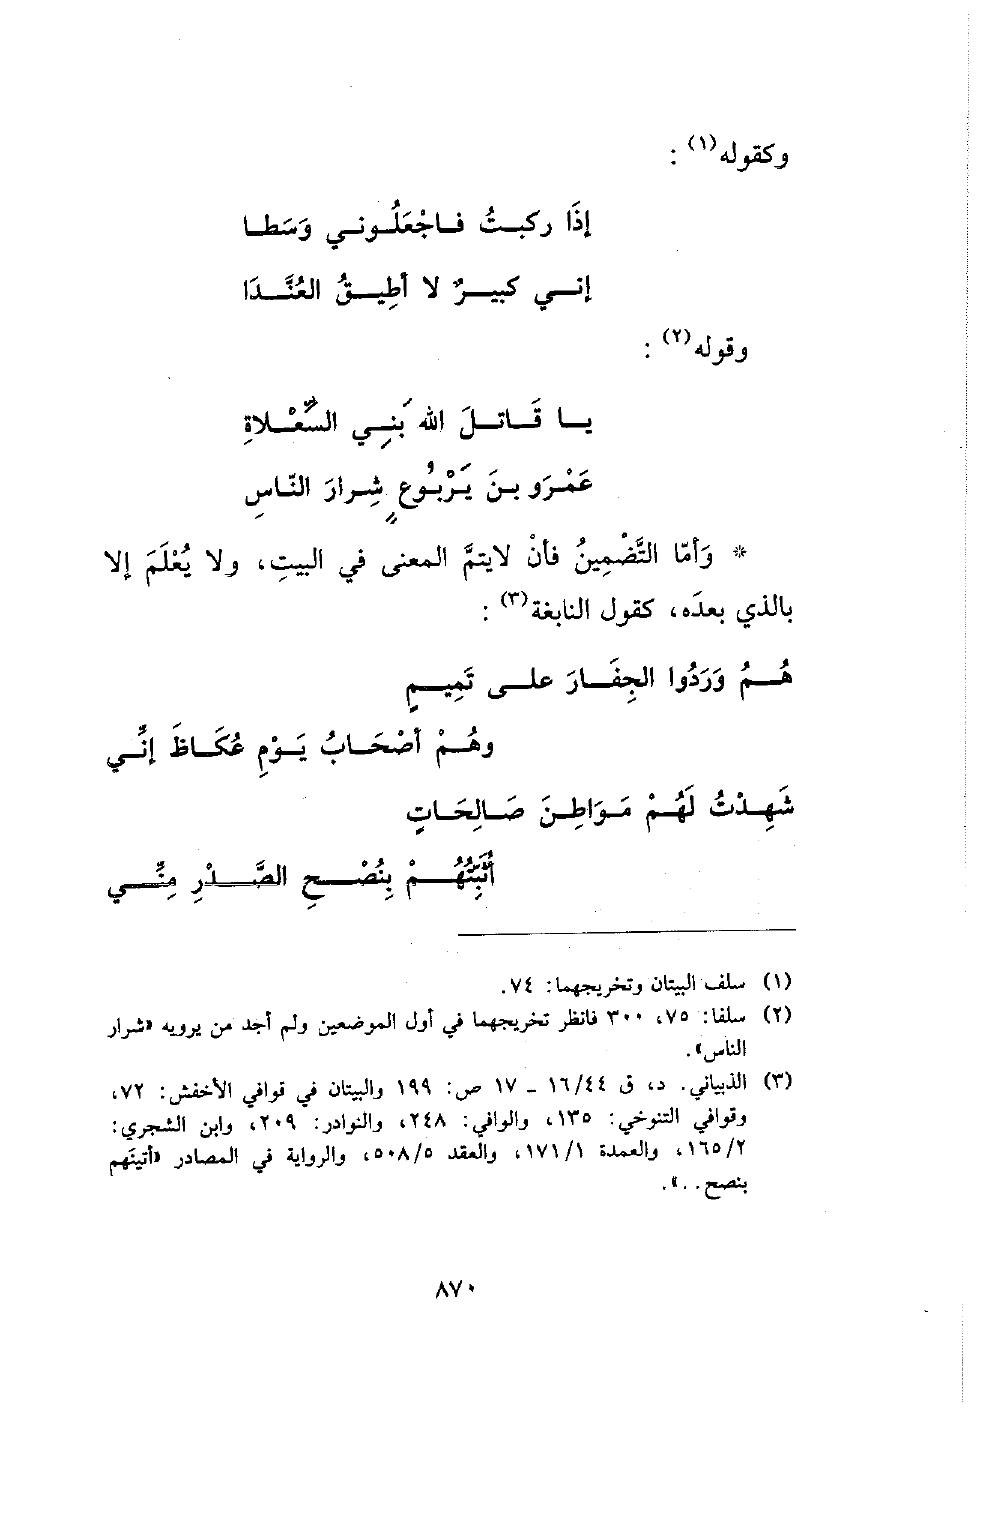 وكقوله(١) :
إذَا ركبتُ فاجْعَلُوني وَسَطا
إني كبيرٌ لا أطِيقُ العُنَّدَا
وقوله(٢) :
يا قَاتلَ الله بَنِي السِّعْلاةِ
عَمْرَو بنَ يَرْبُوعٍ شِرارَ النّاسِ
* وَأمّا التَّضْمِينُ فأنْ لايتمَّ المعنى في البيتِ، ولا يُعْلَمَ إلا
بالذي بعدَه، كقول النابغة(٣) :
هُمُ وَرَدُوا الجِفَارَ على تَمِيمٍ
وهُمْ أصْحَابُ يَوْمِ عُكَاظَ إنِّي
شَهِدْتُ لَهُمْ مَوَاطِنَ صَالِحَاتٍ
أُنَبِّئُهُمْ بِنُصْحِ الصَّدْرِ مِنِّي
(١) سلف البيتان وتخريجهما: ٧٤.
(٢) سلفا: ٧٥، ٣٠٠ فانظر تخريجهما في أول الموضعين ولم أجد من يرويه «شرار
الناس».
(٣) الذبياني. د، ق ١٦/٤٤ ـ ١٧ ص: ١٩٩ والبيتان في قوافي الأخفش: ٧٢،
وقوافي التنوخي: ١٣٥، والوافي: ٢٤٨، والنوادر: ٢٠٩، وابن الشجري:
١٦٥/٢، والعمدة ١٧١/١، والعقد ٥٠٨/٥، والرواية في المصادر «أتيتهم
بنصح . . ».
٨٧٠